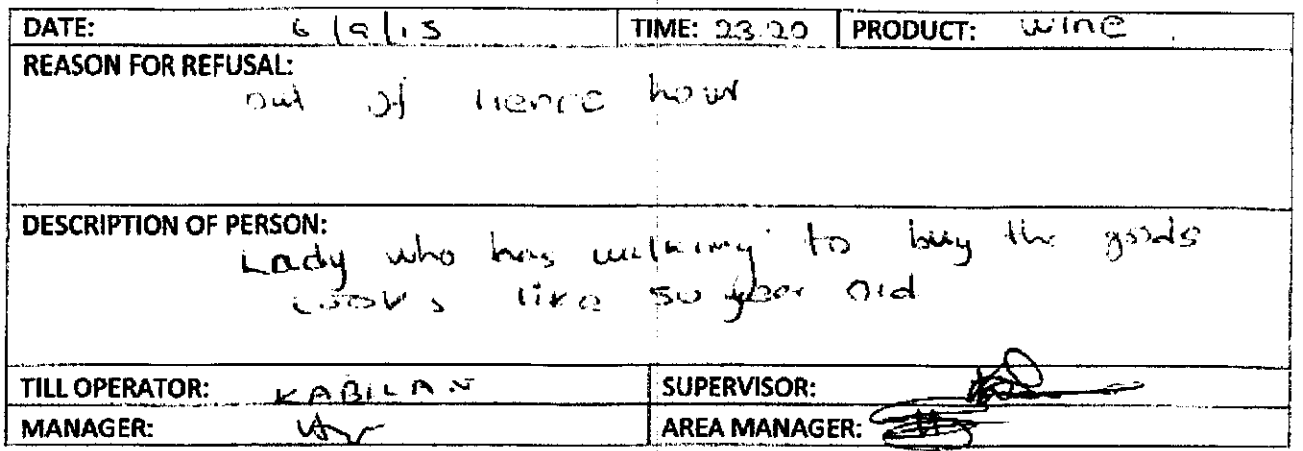 DATE: 6/9/15 TIME: 23.20 PRODUCT: wine
REASON FOR REFUSAL:
out of lience hour
DESCRIPTION OF PERSON:
Lady who has walking to buy the goods
Looks like 50 year old
TILL OPERATOR: KABILAN SUPERVISOR:
MANAGER: AREA MANAGER: